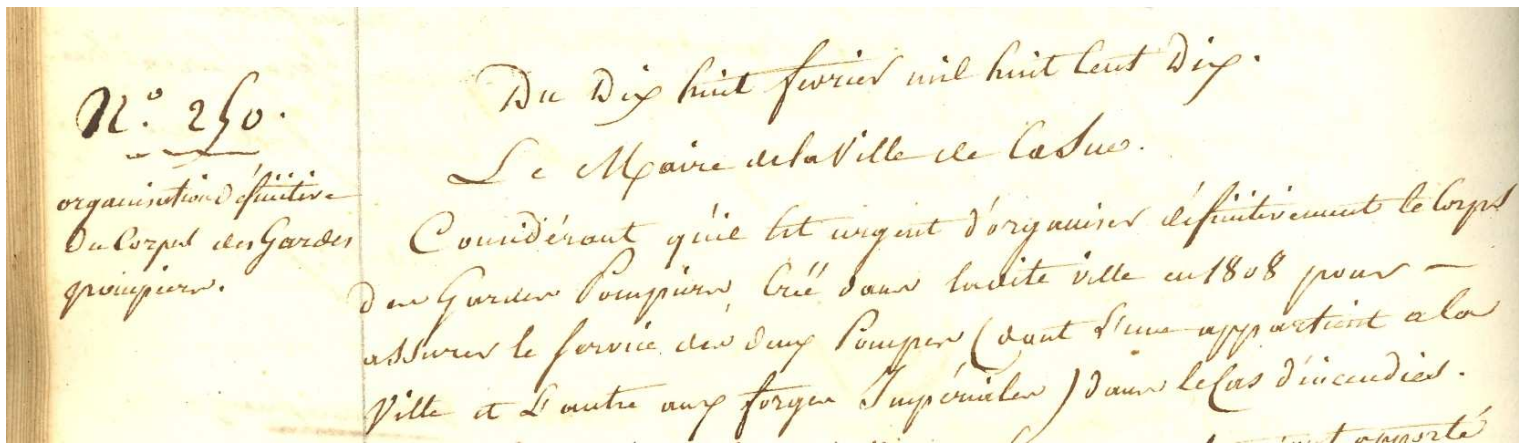 N.° 250.
organisation définitive
Du Corps des Gardes
pompiers.
Du Dix huit fevrier mil huit Cent Dix.
Le Maire de la Ville de
Considérant qu'il Est urgent d'organiser définitivement le Corps
Des Gardes Pompiers, Créé dans ladite ville en 1808 pour —
assurer le service des deux Pompes (dont L'une appartient a la
Ville et L'autre aux forges Impériales) dans le Cas d'incendies.
apporté